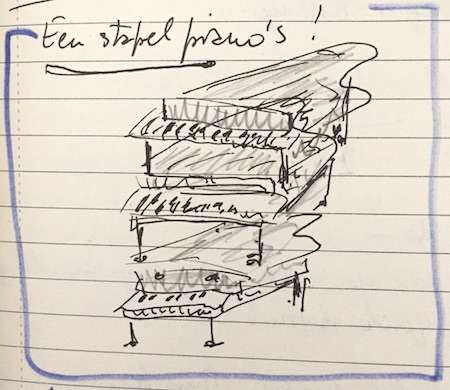 Een stapel piano's !